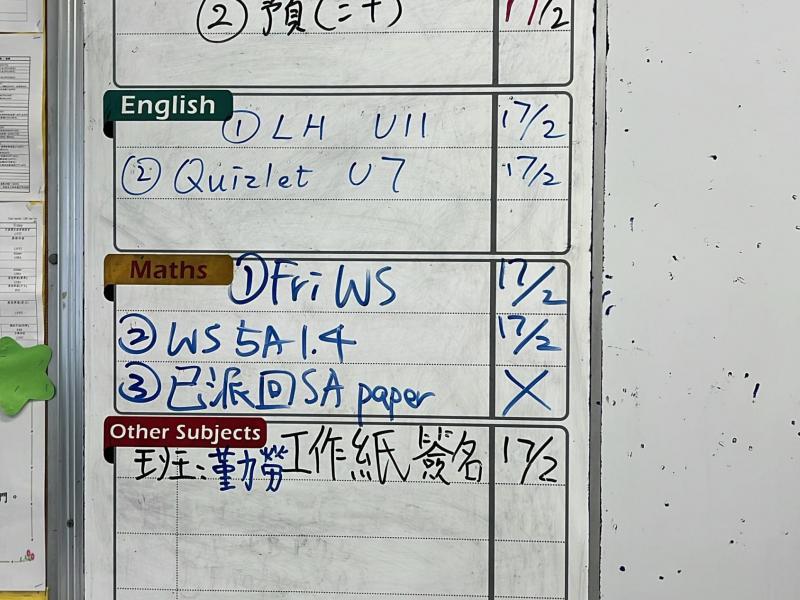 ② 預(二十) 17/2
English
① LH U11 17/2
② Quizlet U7 17/2
Maths
① Fri WS 17/2
② WS 5A1.4 17/2
③ 已派回SA paper X
Other Subjects
班:勤勞工作紙簽名 17/2